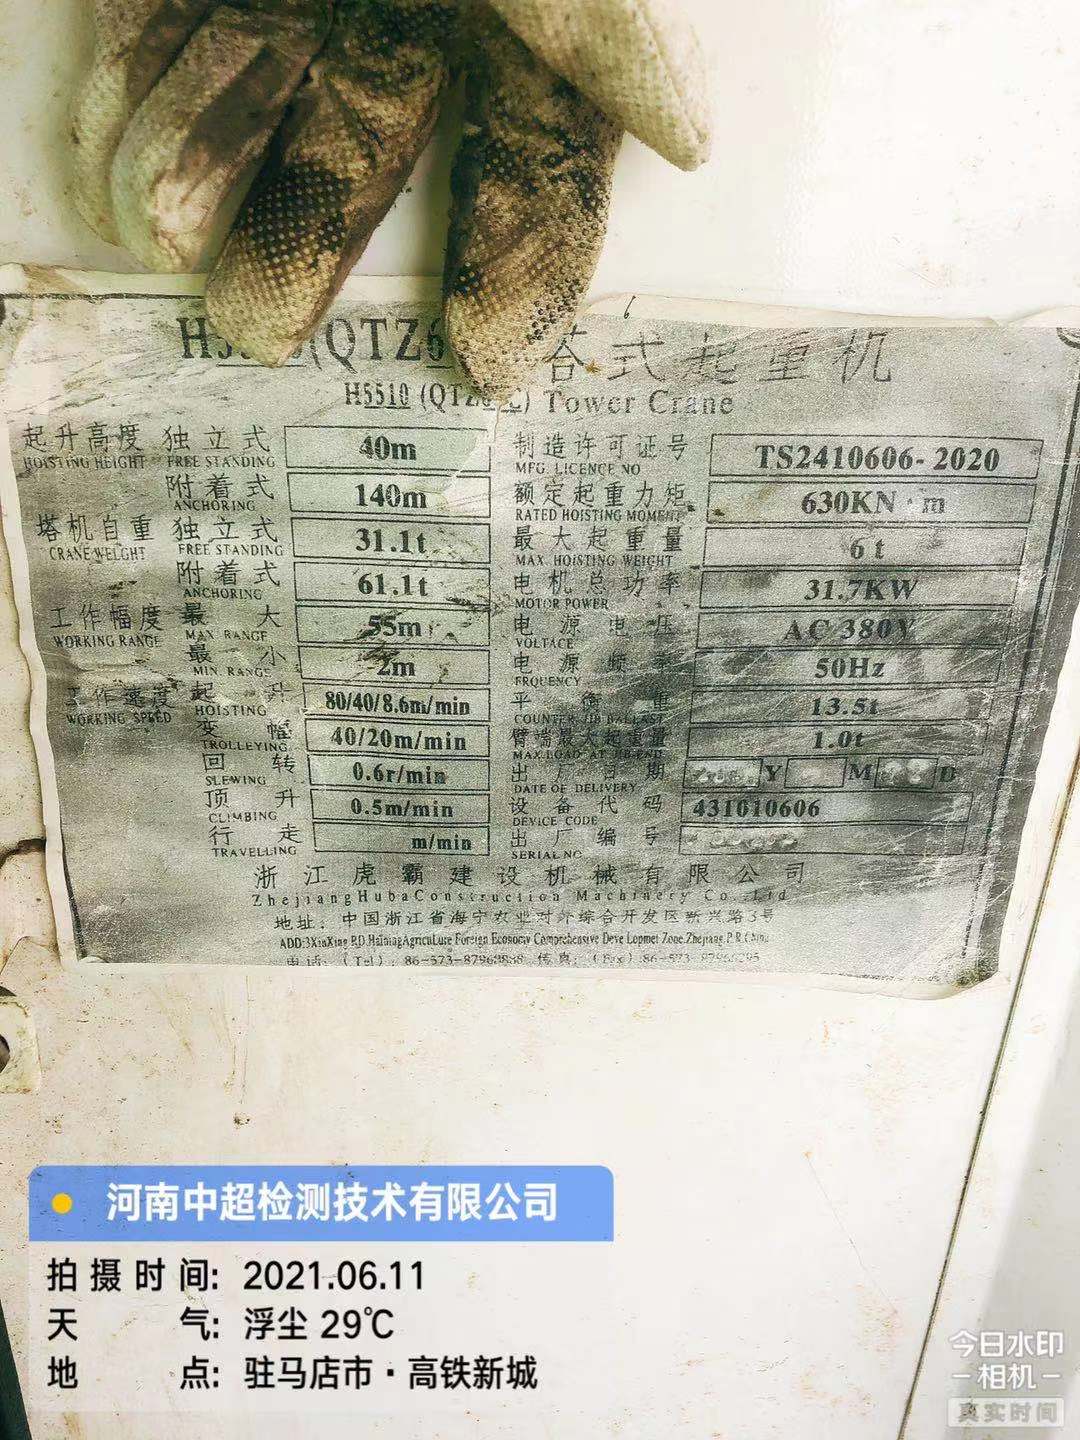 (QTZ6 塔式起重机
H5510 (QTZ Tower Crane
起升高度 独立式 40m 制造许可证号 TS2410606-2020
HOISTING HEIGHT FREE STANDING MFG. LICENCE NO
附着式 140m 额定起重力矩 630KN·m
ANCHORING RATED HOISTING MOMENT
塔机自重 独立式 31.1t 最大起重量 6t
CRANE WELGHT FREE STANDING MAX. HOISTING WEIGHT
附着式 61.1t 电机总功率 31.7KW
ANCHORING MOTOR POWER
工作幅度 最大 55m 电源电压 AC 380V
WORKING RANGE MAX RANGE VOLTACE
最小 2m 电源频率 50Hz
MIN RANGE FRQUENCY
工作速度 起升 80/40/8.6m/min 平衡重 13.5t
WORKING SPEED HOISTING COUNTER JIB BALLAST
变幅 40/20m/min 臂端最大起重量 1.0t
TROLLEYING MAX LOAD AT JIB END
回转 0.6r/min 出厂日期 Y M D
SLEWING DATE OF DELIVERY
顶升 0.5m/min 设备代码 431010606
CLIMBING DEVICE CODE
行走 m/min 出厂编号
TRAVELLING SERIAL NO
浙江虎霸建设机械有限公司
ZhejiangHubaConstruction Machinery Co.,Ltd
地址：中国浙江省海宁农业对外综合开发区新兴路3号
ADD:3XinXing RD.HainingAgricuLure Foreign Economy Comprehensive Deve Lopmet Zone.Zhejiang.P.R.
电话：(Tel)：86-573-87968888 传真：(Fax):86-573-87966295
河南中超检测技术有限公司
拍摄时间: 2021.06.11
天气: 浮尘 29℃
地点: 驻马店市·高铁新城
今日水印
相机
真实时间